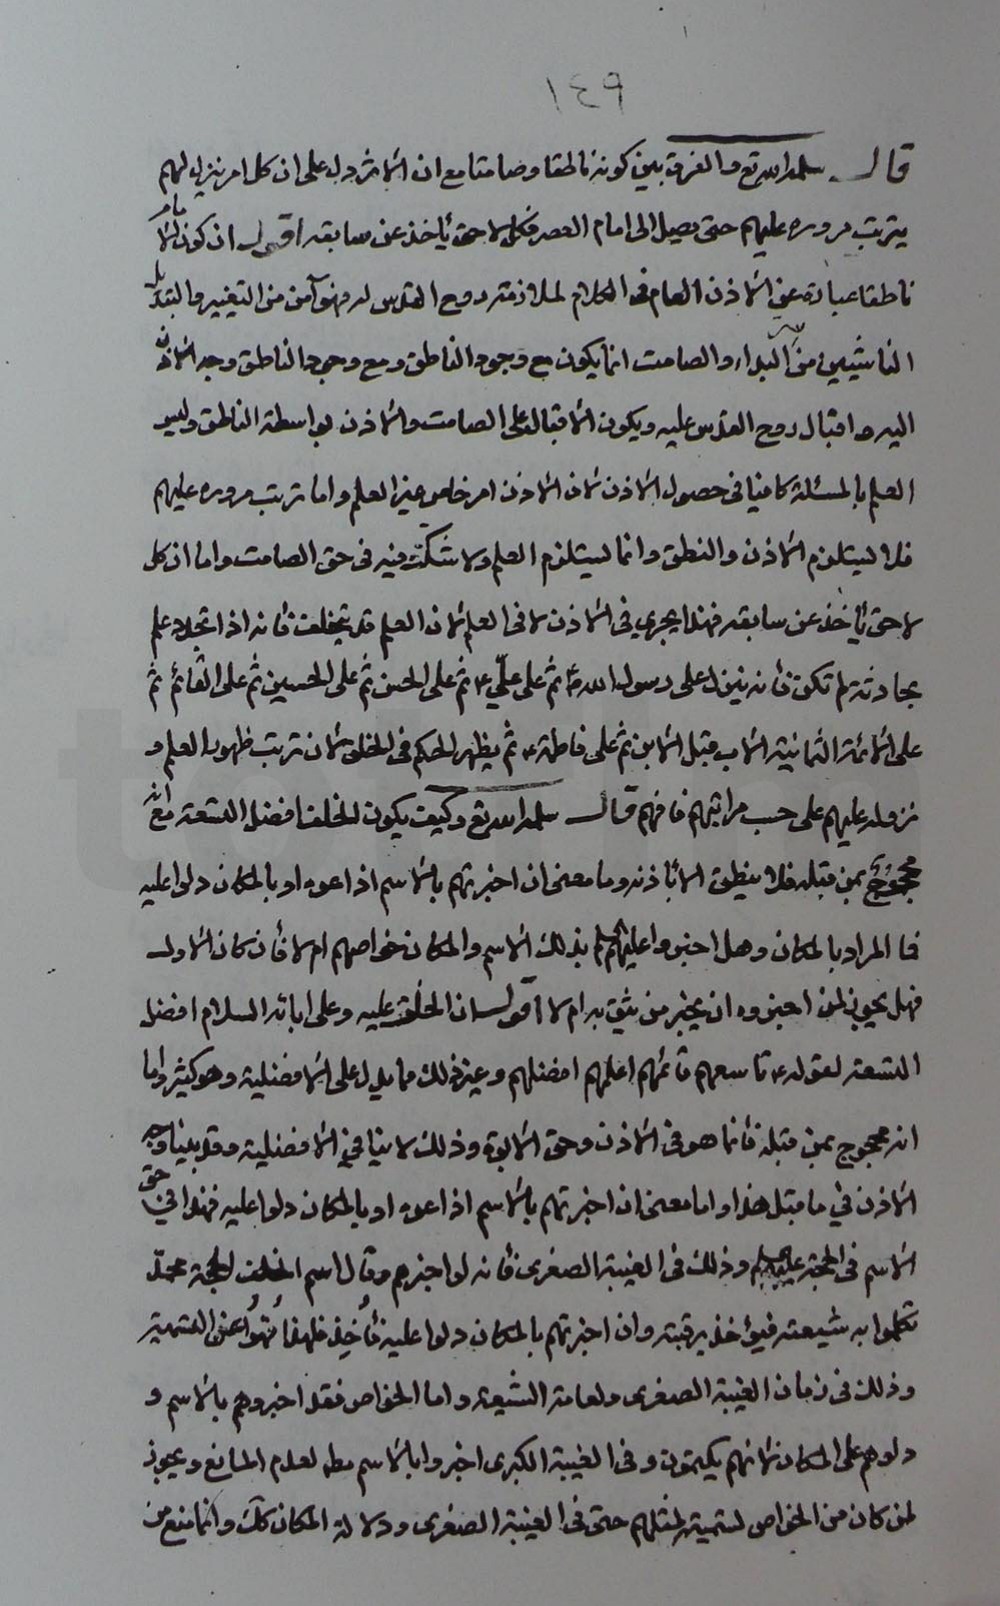 ١٤٩
قال سلمه الله تع والفرق بين كونه ناطقا وصامتا مع ان الاثار تدل على ان كل امر ينزل لهم
يترتب مروره عليهم حتى يصل الى امام العصر فكل لاحق يأخذ عن سابقه اقول ان كون الامام
ناطقا عبارة عن الاذن العام فى الكلام لملازمة روح القدس له فهو آمن من التغيير والتبديل
الناشيين من البداء والصامت انما يكون مع وجود الناطق ومع وجود الناطق وجه الاذن
اليه واقبال روح القدس عليه ويكون الاقبال على الصامت والاذن بواسطة الناطق وليس
العلم بالمسئلة كافيا فى حصول الاذن لان الاذن امر خاص غير العلم واما ترتب مروره عليهم
فلا يستلزم الاذن والنطق وانما يستلزم العلم ولا شك فيه فى حق الصامت واما ان كل
لاحق يأخذ عن سابقه فهذا يجرى فى الاذن لا فى العلم لان العلم قد يتخلف فأنه اذا تجدد علم
بحادثة لم تكن فأنه ينزل على رسول الله ص ثم على علّي ع ثم على الحسن ثم على الحسين ثم على القائم ثم
على الائمة الثمانية الاب قبل الابن ثم على فاطمة ع ثم يظهر الحكم فى الخلق لان ترتب ظهور العلم و
نزوله عليهم على حسب مراتبهم فافهم قال سلمه الله تع وكيف يكون الخلف افضل التسعة مع انه
محجوج بمن قبله فلا ينطق الا بأذنه وما معنى ان اخبرتهم بالاسم اذاعوه او بالمكان دلوا عليه
فما المراد بالمكان وهل اخبروا عليهم السلم بذلك الاسم والمكان خواصهم ام لا فأن كان الاول
فهل يجوز لمن اخبروه ان يخبر من يثق به ام لا اقول ان الخلف عليه وعلى ابائه السلام افضل
التسعة لقوله ع تاسعهم قائمهم اعلمهم افضلهم وغير ذلك مما يدل على الافضلية وهو كثير واما
انه محجوج بمن قبله فأنما هو فى الاذن وحق الابوة وذلك لا ينافي الافضلية وقد بينا وجه
الاذن في ما قبل هذا واما معنى ان اخبرتهم بالاسم اذاعوه او بالمكان دلوا عليه فهذا في حق
الاسم فى الحجة عليه السلم وذلك فى الغيبة الصغرى فأنه لو اخبرهم وقال اسم الخلف الحجة محمّد
تكلموا به شيعته فيؤخذ برقبته وان اخبرتهم بالمكان دلوا عليه فأُخِذ فلهذا نُهُوا عن التسمية
وذلك فى زمان الغيبة الصغرى ولعامة الشيعة واما الخواص فقد اخبروهم بالاسم و
دلوهم على المكان لانهم يكتمون وفى الغيبة الكبرى اخبروا بالاسم مط لعدم المانع ويجوز
لمن كان من الخواص تسميته لمثلهم حتى فى الغيبة الصغرى ودلالة المكان كك وانما منع من